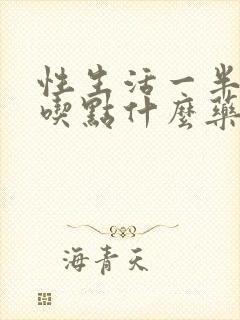 性生活一半
喫點什麼藥
海青天